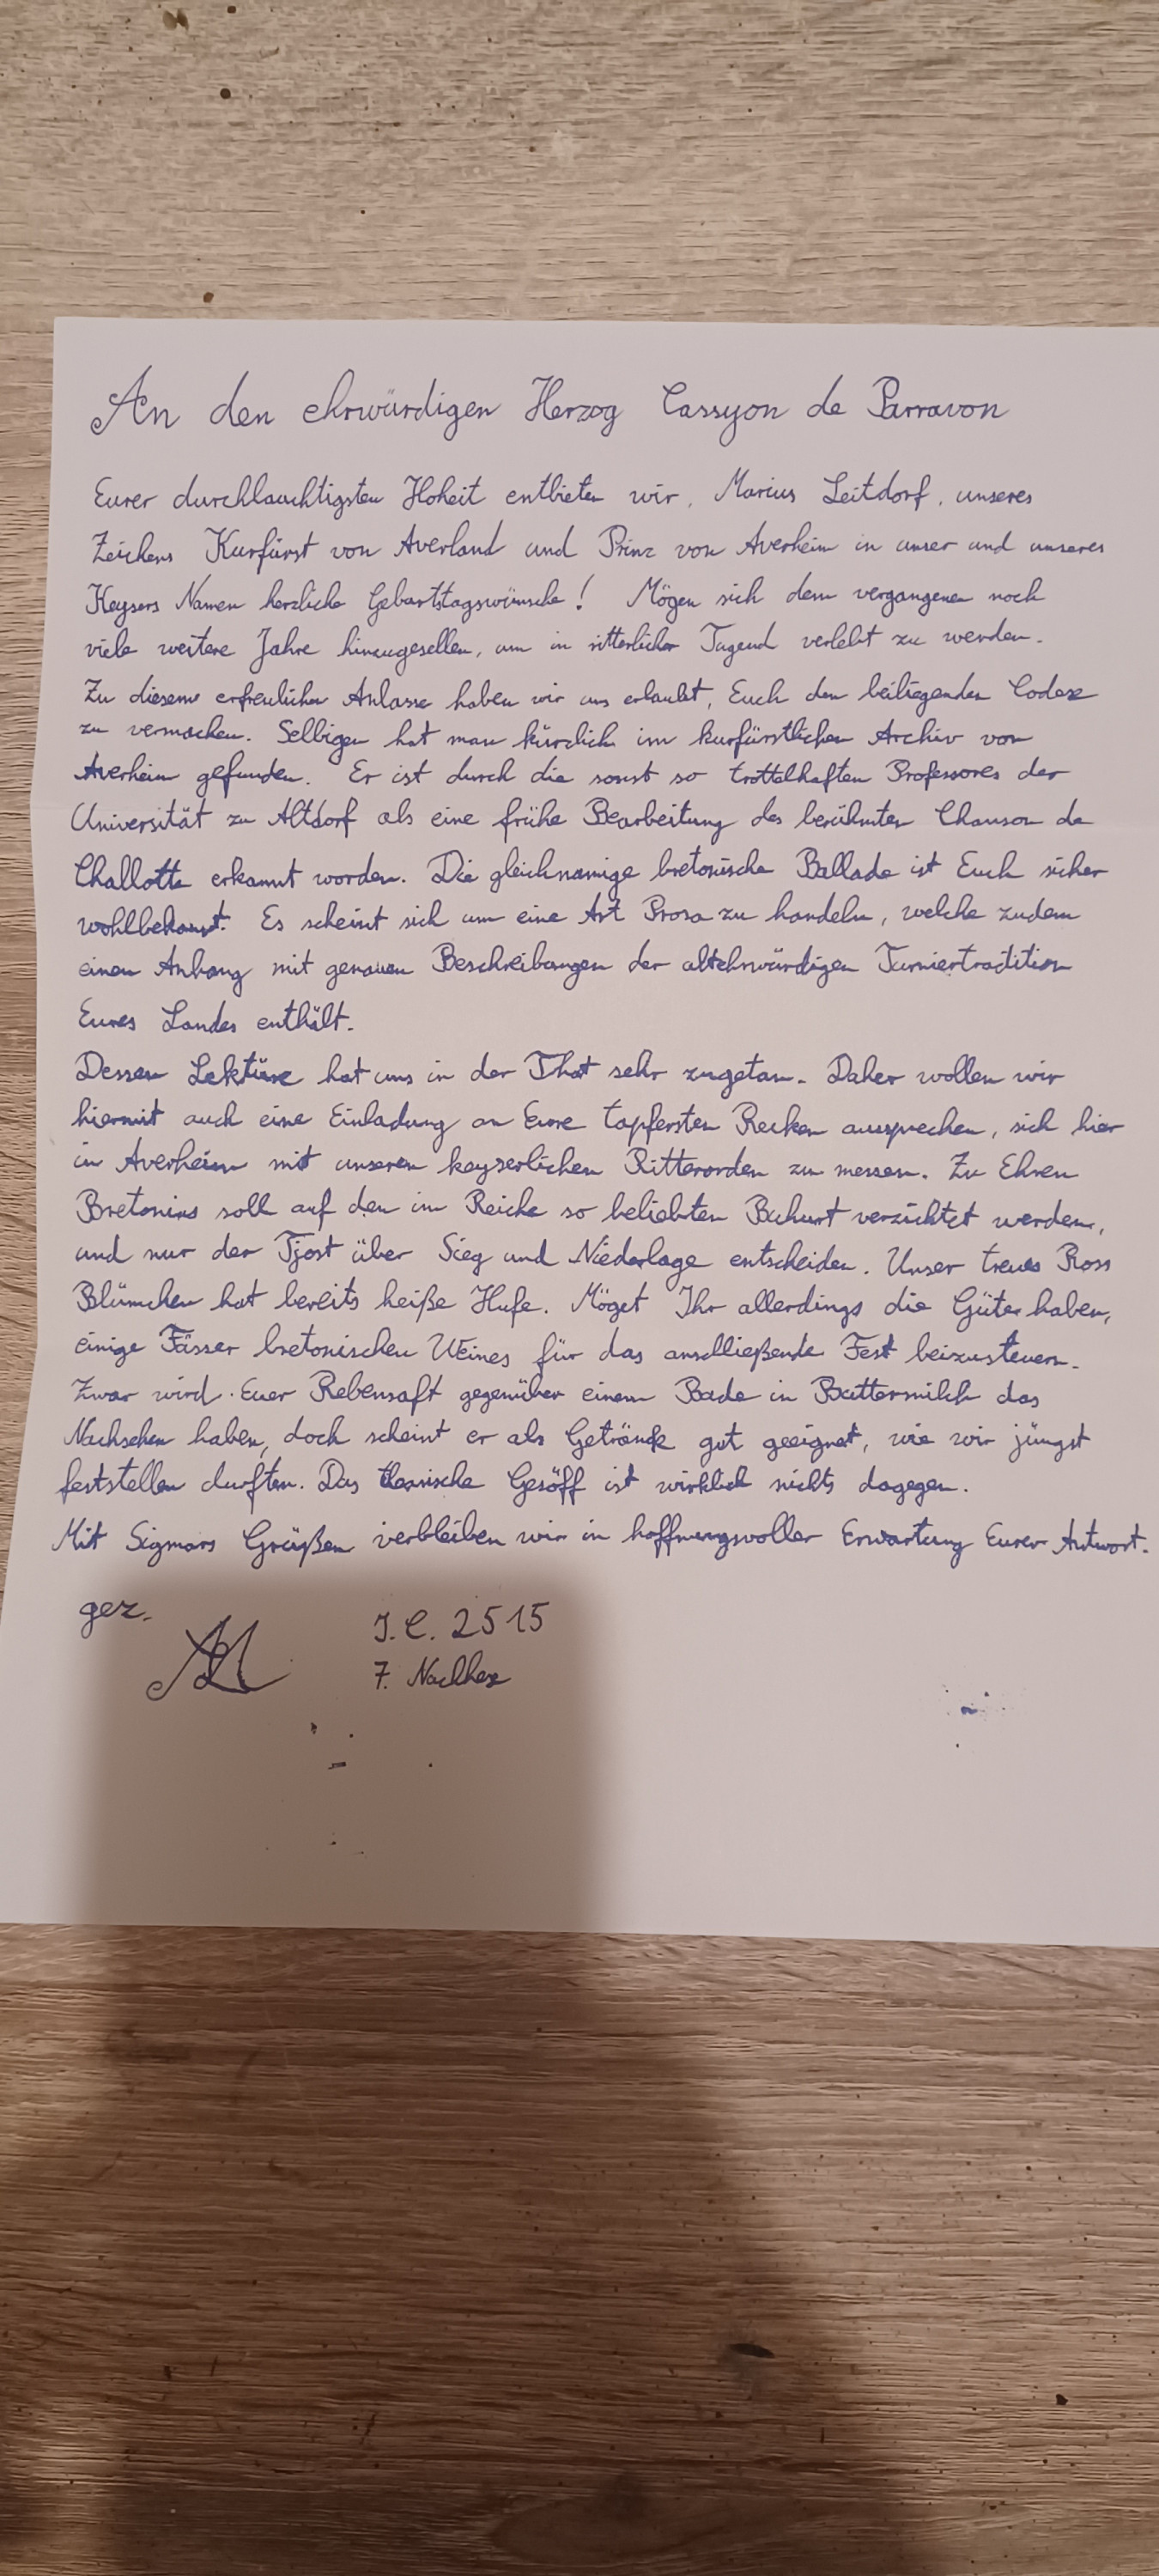 An den ehrwürdigen Herzog Cassyon de Parravon
Eurer durchlauchtigsten Hoheit entbieten wir, Marius Leitdorf, unseres
Zeichens Kurfürst von Averland und Prinz von Averheim in unser und unseres
Keysers Namen herzliche Geburtstagswünsche! Mögen sich dem vergangenen noch
viele weitere Jahre hinzugesellen, um in ritterlicher Tugend verlebt zu werden.
Zu diesem erfreulichen Anlasse haben wir uns erlaubt, Euch den beiliegenden Codex
zu vermachen. Selbigen hat man kürzlich im kurfürstlichen Archiv von
Averheim gefunden. Er ist durch die sonst so trottelhaften Professores der
Universität zu Altdorf als eine frühe Bearbeitung des berühmten Chanson de
Challotte erkannt worden. Die gleichnamige bretonische Ballade ist Euch sicher
wohlbekannt. Es scheint sich um eine Art Prosa zu handeln, welche zudem
einen Anhang mit genauen Beschreibungen der altehrwürdigen Turniertradition
Eures Landes enthält.
Dessen Lektüre hat uns in der That sehr zugetan. Daher wollen wir
hiermit auch eine Einladung an Eure tapfersten Recken aussprechen, sich hier
in Averheim mit unseren keyserlichen Ritterorden zu messen. Zu Ehren
Bretonias soll auf den im Reiche so beliebten Buhurt verzichtet werden,
und nur der Tjost über Sieg und Niederlage entscheiden. Unser treues Ross
Blümchen hat bereits heiße Hufe. Möget Ihr allerdings die Güte haben,
einige Fässer bretonischen Weines für das anschließende Fest beizusteuern.
Zwar wird Euer Rebensaft gegenüber einem Bade in Buttermilch das
Nachsehen haben, doch scheint er als Getränk gut geeignet, wie wir jüngst
feststellen durften. Das tileanische Gesöff ist wirklich nichts dagegen.
Mit Sigmars Grüßen verbleiben wir in hoffnungsvoller Erwartung Eurer Antwort.
gez.
I.C. 2515
7. Nachhexe